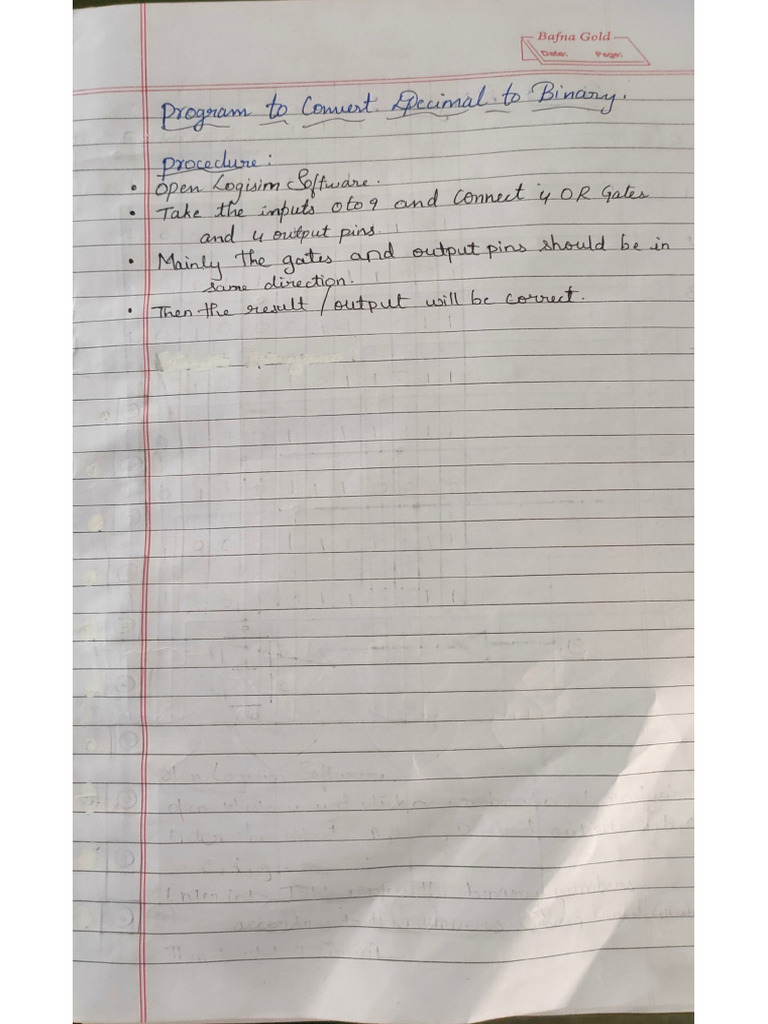 Bafna Gold
Date: Page:
Program to Convert Decimal to Binary.
Procedure:
• Open Logisim Software.
• Take the inputs 0 to 9 and Connect 4 OR Gates
and 4 output pins.
• Mainly the gates and output pins should be in
same direction.
• Then the result / output will be correct.